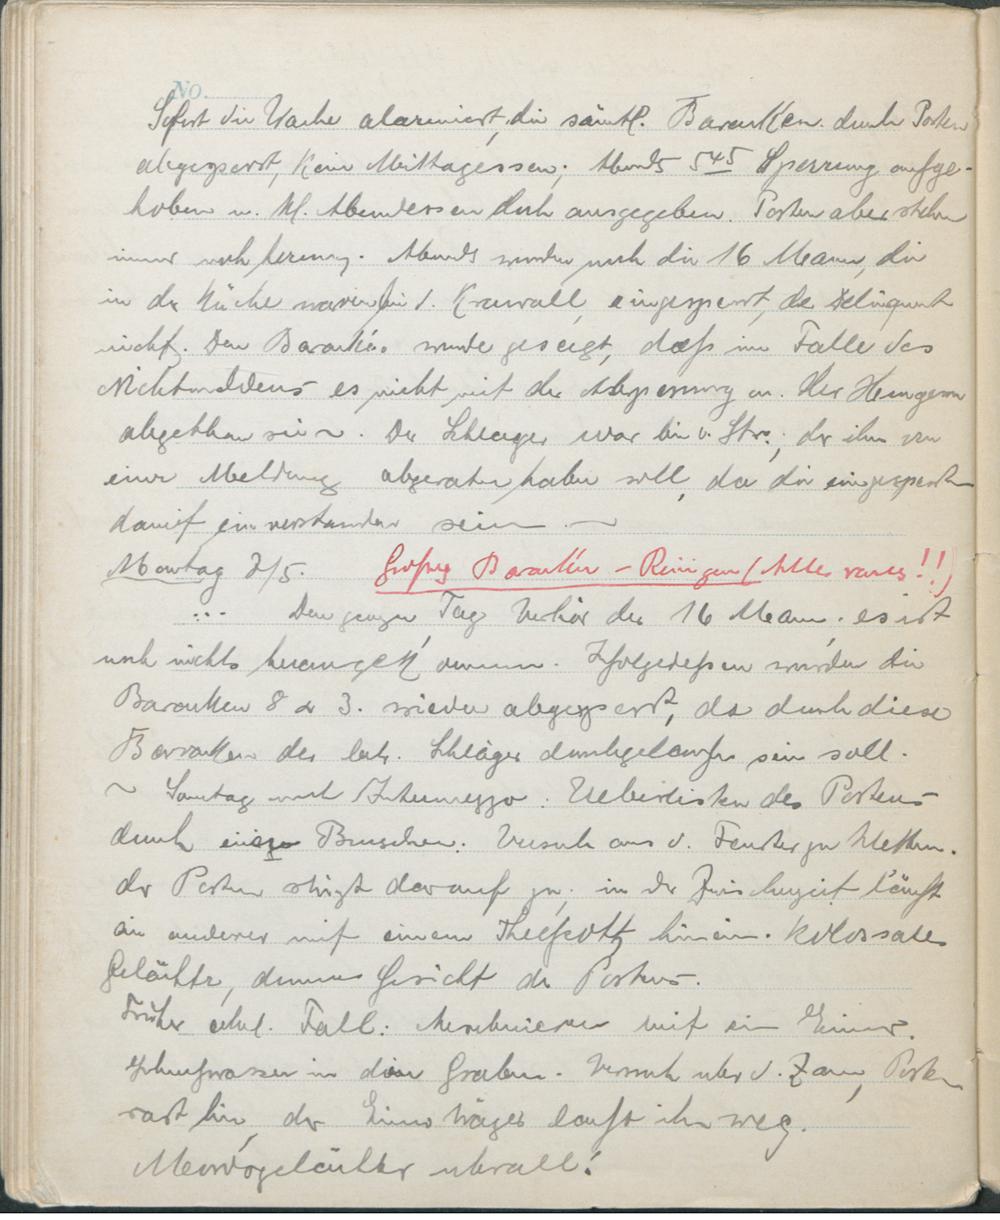 No.
Sofort die Wache alarmiert, die sämtl. Baracken durch Posten
abgesperrt, kein Mittagessen; Abends 5 45 Sperrung aufge-
hoben u. kl. Abendessen doch ausgegeben. Posten aber stehen
immer noch herum. Abends wurden noch die 16 Mann, die
in der Küche waren bei d. Krawall, eingesperrt, der Delinquent
nicht. Den Baracken wurde gesagt, daß im Falle des
Nichtmeldens es nicht mit der Absperrung u. der Hungern
abgethan sei ~. Der Schläger war bei v. Str., der ihm von
einer Meldung abgeraten haben soll, da die eingesperrten
damit einverstanden seien. ~
Montag 7/5. Großes Baracken-Reinigen (Alles raus!!)
... Den ganzen Tag Verhör der 16 Mann. es ist
noch nichts herausgekommen. Infolgedessen wurden die
Baracken 8 & 3. wieder abgesperrt, da durch diese
Baracken der Schläger durchgelaufen sein soll.
~ Sonntag noch Intermezzo. Ueberlisten des Postens
durch einige Burschen. Versuch aus d. Fenster zu klettern.
der Posten stürzt darauf zu, in der Zwischenzeit läuft
ein anderer mit einem Theepott hinein. Kolossales
Gelächter, dummes Gesicht des Postens.
Früher ähnl. Fall: Marschieren mit ein Eimer
in den Graben. Versuch über d. Zaun, Posten
rast hin, der Eimerträger lauft ihm weg.
Mordsgelächter überall!